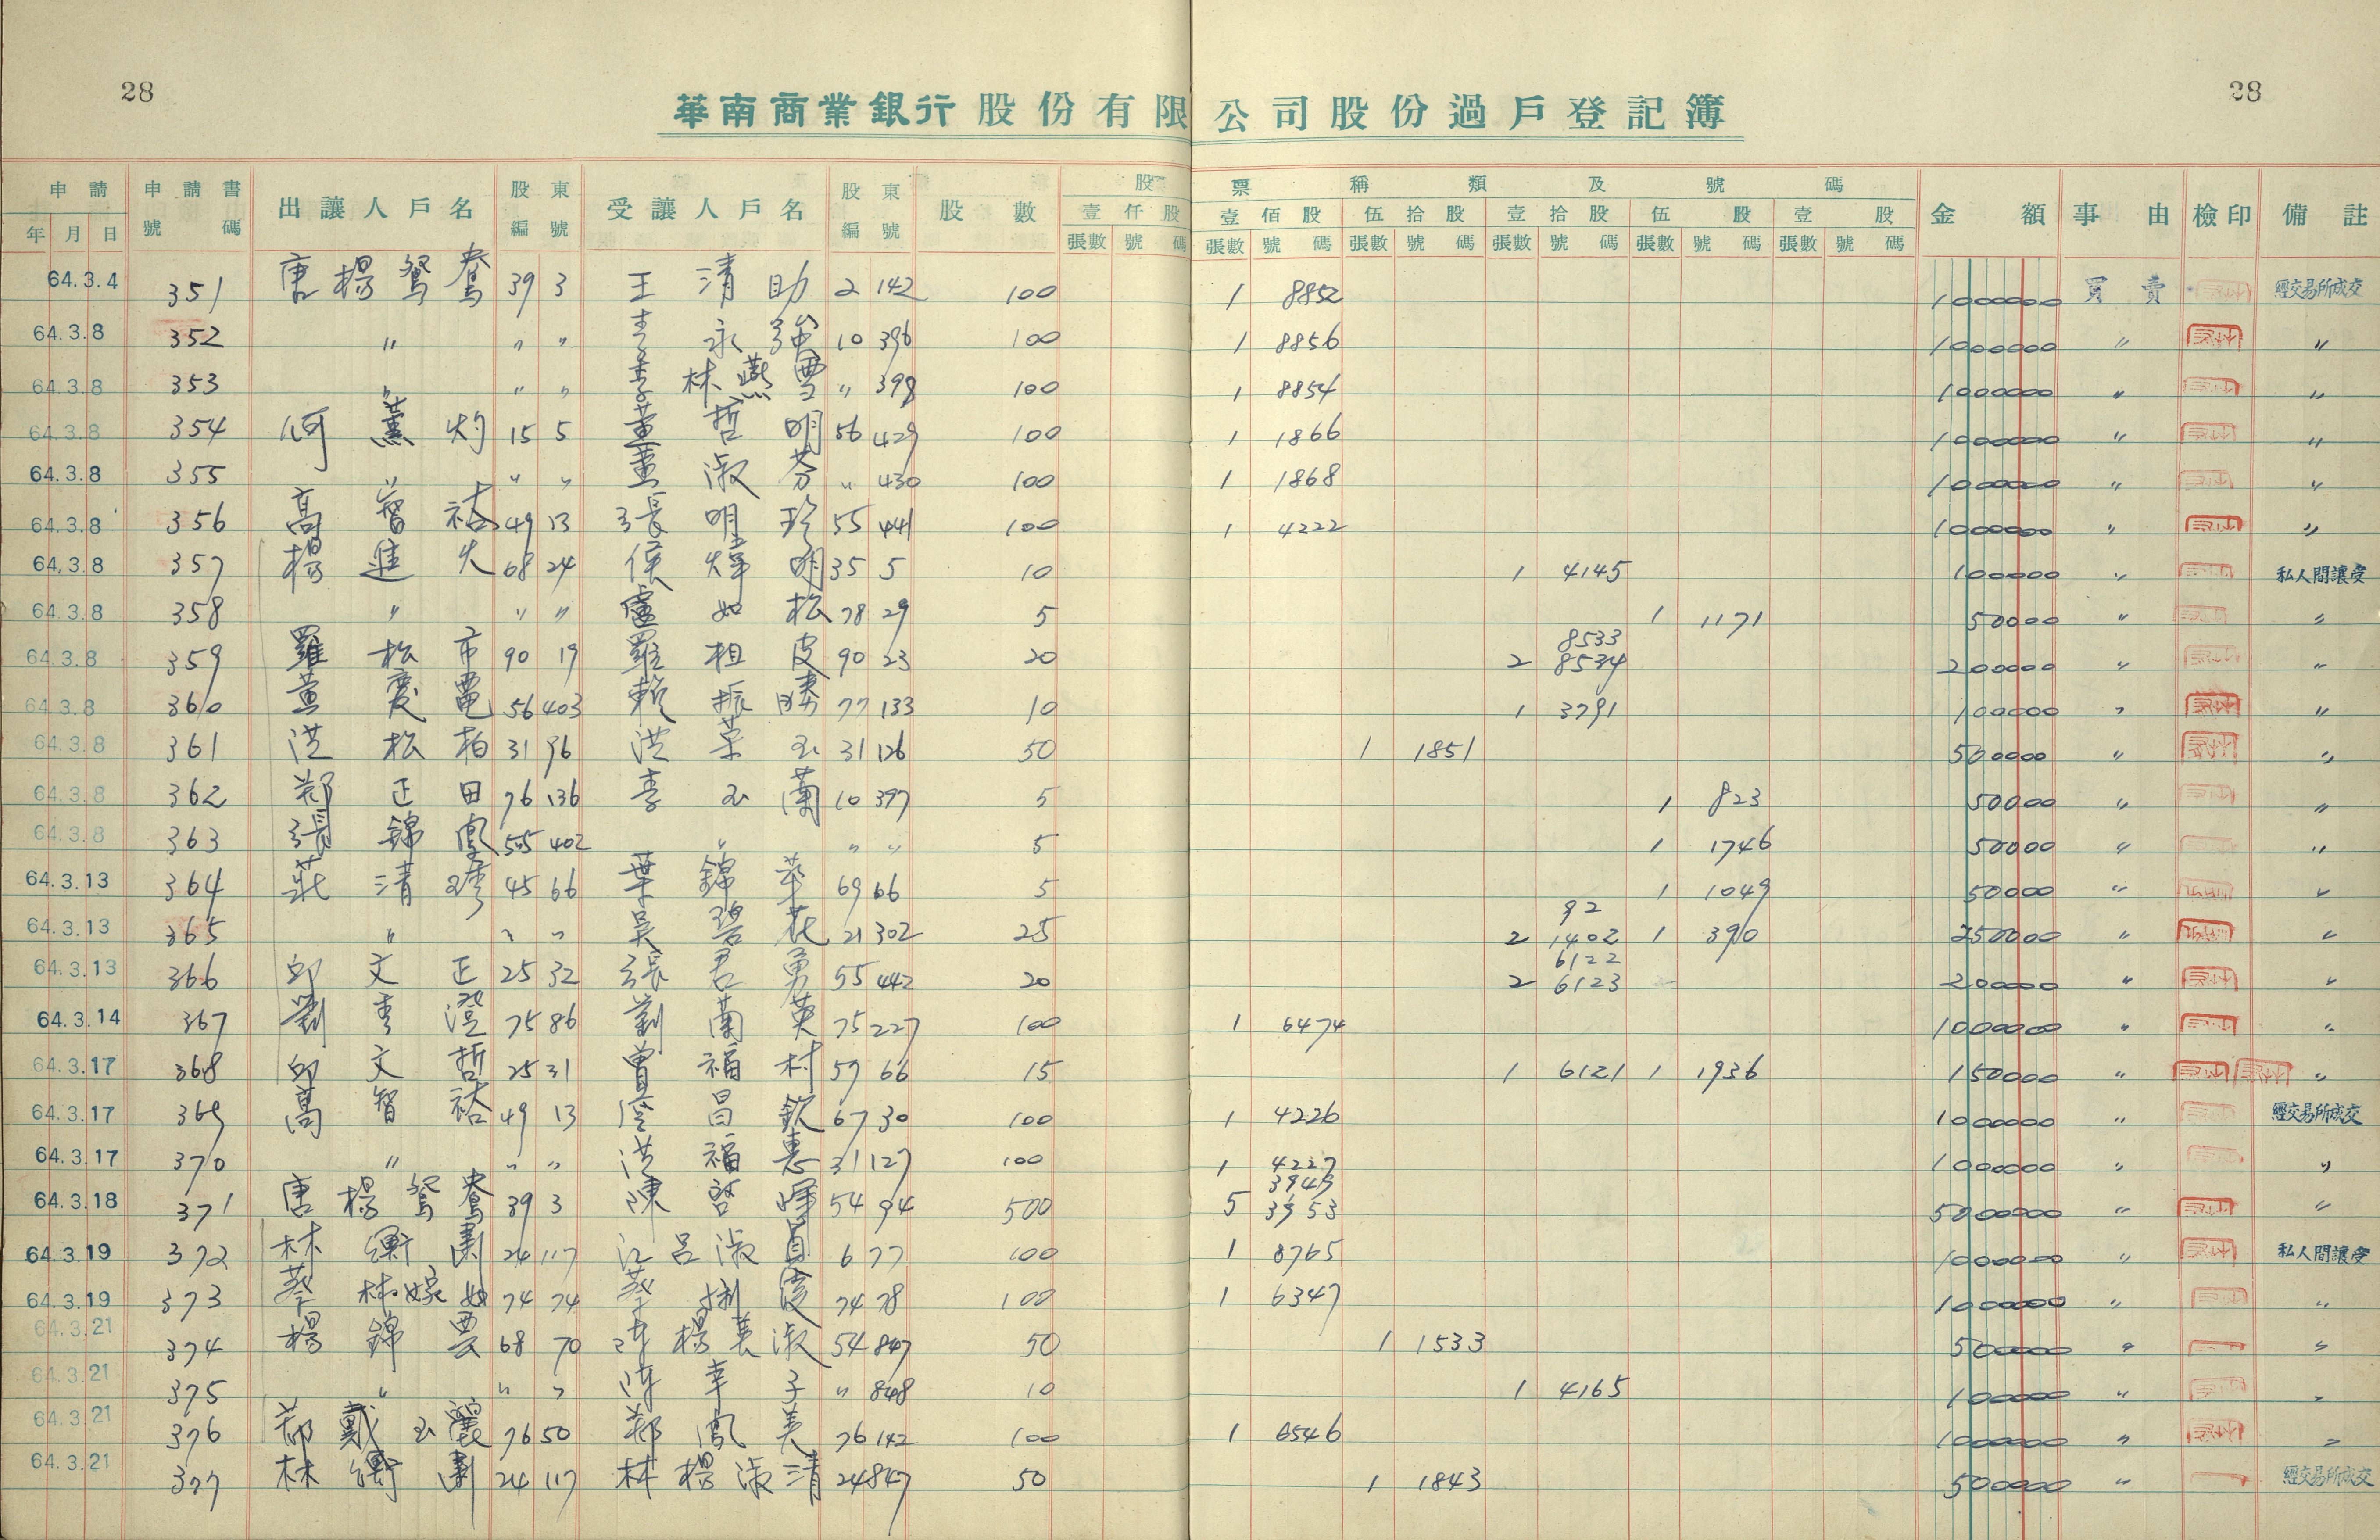 28
28
華南商業銀行股份有限公司股份過戶登記簿
申請 年 月 日 申請書號碼 出讓人戶名 股東編號 受讓人戶名 股東編號 股數 股票種類及號碼 金額 事由 檢印 備註
壹仟股 壹佰股 伍拾股 壹拾股 伍股 壹股
張數 號碼 張數 號碼 張數 號碼 張數 號碼 張數 號碼 張數 號碼
64.3.4 351 唐楊鴛鴦 39 3 王清助 2 142 100 1 8852 1000000 買賣 經交易所成交
64.3.8 352 〃 〃 〃 李永強 10 396 100 1 8856 1000000 〃 〃
64.3.8 353 〃 〃 〃 李林燕雪 〃 398 100 1 8854 1000000 〃 〃
64.3.8 354 何薰灼 15 5 董哲明 56 429 100 1 1866 1000000 〃 〃
64.3.8 355 〃 〃 〃 董淑芬 〃 430 100 1 1868 1000000 〃 〃
64.3.8 356 高智祐 49 13 張明珍 55 441 100 1 4222 1000000 〃 〃
64.3.8 357 楊進火 68 24 侯輝明 35 5 10 1 4145 100000 〃 私人間讓受
64.3.8 358 〃 〃 〃 盧如松 78 29 5 1 1171 50000 〃 〃
64.3.8 359 羅松市 90 19 羅相皮 90 23 20 2 8533 8534 200000 〃 〃
64.3.8 360 董慶 56 403 賴振勝 77 133 10 1 3791 100000 〃 〃
64.3.8 361 洪松柏 31 96 洪玉 31 126 50 1 1851 500000 〃 〃
64.3.8 362 鄭正田 76 136 李玉蘭 10 397 5 1 823 50000 〃 〃
64.3.8 363 張錦鳳 55 402 〃 〃 〃 5 1 1746 50000 〃 〃
64.3.13 364 莊清琇 45 66 葉錦華 69 66 5 1 1049 50000 〃 〃
64.3.13 365 〃 〃 〃 吳碧花 21 302 25 2 92 1402 1 390 250000 〃 〃
64.3.13 366 邱文正 25 32 張君勇 55 442 20 2 6122 6123 200000 〃 〃
64.3.14 367 劉澄 75 86 劉蘭英 75 227 100 1 6474 1000000 〃 〃
64.3.17 368 邱文哲 25 31 曾福村 57 66 15 1 6121 1 1936 150000 〃 〃
64.3.17 369 高智祐 49 13 廖昌欽 67 30 100 1 4226 1000000 〃 經交易所成交
64.3.17 370 〃 〃 〃 洪福惠 31 127 100 1 4227 1000000 〃 〃
64.3.18 371 唐楊鴛鴦 39 3 陳啓 54 94 500 5 3949 3953 5000000 〃 〃
64.3.19 372 林衡 24 117 江呂淑 6 77 100 1 8765 1000000 〃 私人間讓受
64.3.19 373 蔡林嫁 74 74 蔡 74 78 100 1 6347 1000000 〃 〃
64.3.21 374 楊錦雲 68 70 陳楊美淑 54 847 50 1 1533 500000 〃 〃
64.3.21 375 〃 〃 〃 陳幸子 〃 848 10 1 4165 100000 〃 〃
64.3.21 376 鄭戴玉麗 76 50 鄭鳳美 76 142 100 1 6546 1000000 〃 〃
64.3.21 377 林衡 24 117 林楊淑清 24 847 50 1 1843 500000 〃 經交易所成交